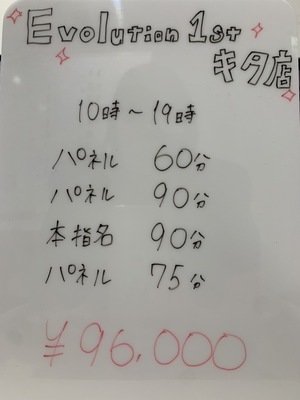 Evolution 1st
キタ店
10時～19時
パネル 60分
パネル 90分
本指名 90分
パネル 75分
¥96,000